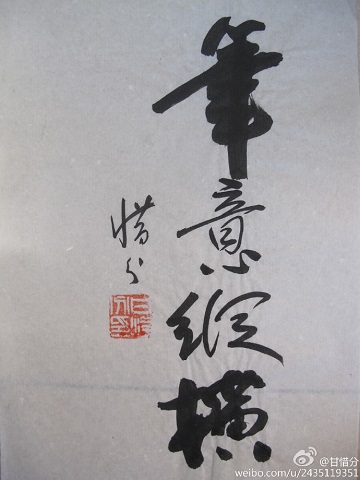 筆意縱橫
惜分
@甘惜分
weibo.com/u/2435119351